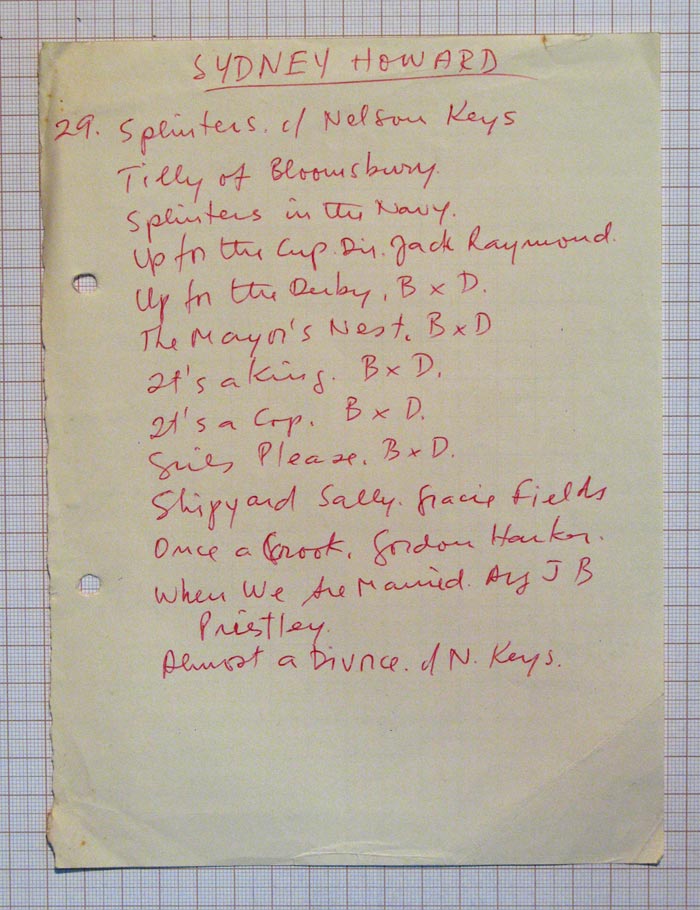 SYDNEY HOWARD
29. Splinters. c/ Nelson Keys
Tilly of Bloomsbury.
Splinters in the Navy.
Up for the Cup. Dir. Jack Raymond.
Up for the Derby, B x D.
The Mayor's Nest. B x D
It's a King. B x D.
It's a Cop. B x D.
Girls Please. B x D.
Shipyard Sally. Gracie Fields
Once a Crook, Gordon Harker.
When We Are Married. J B
Priestley.
Almost a Divorce. c/ N. Keys.